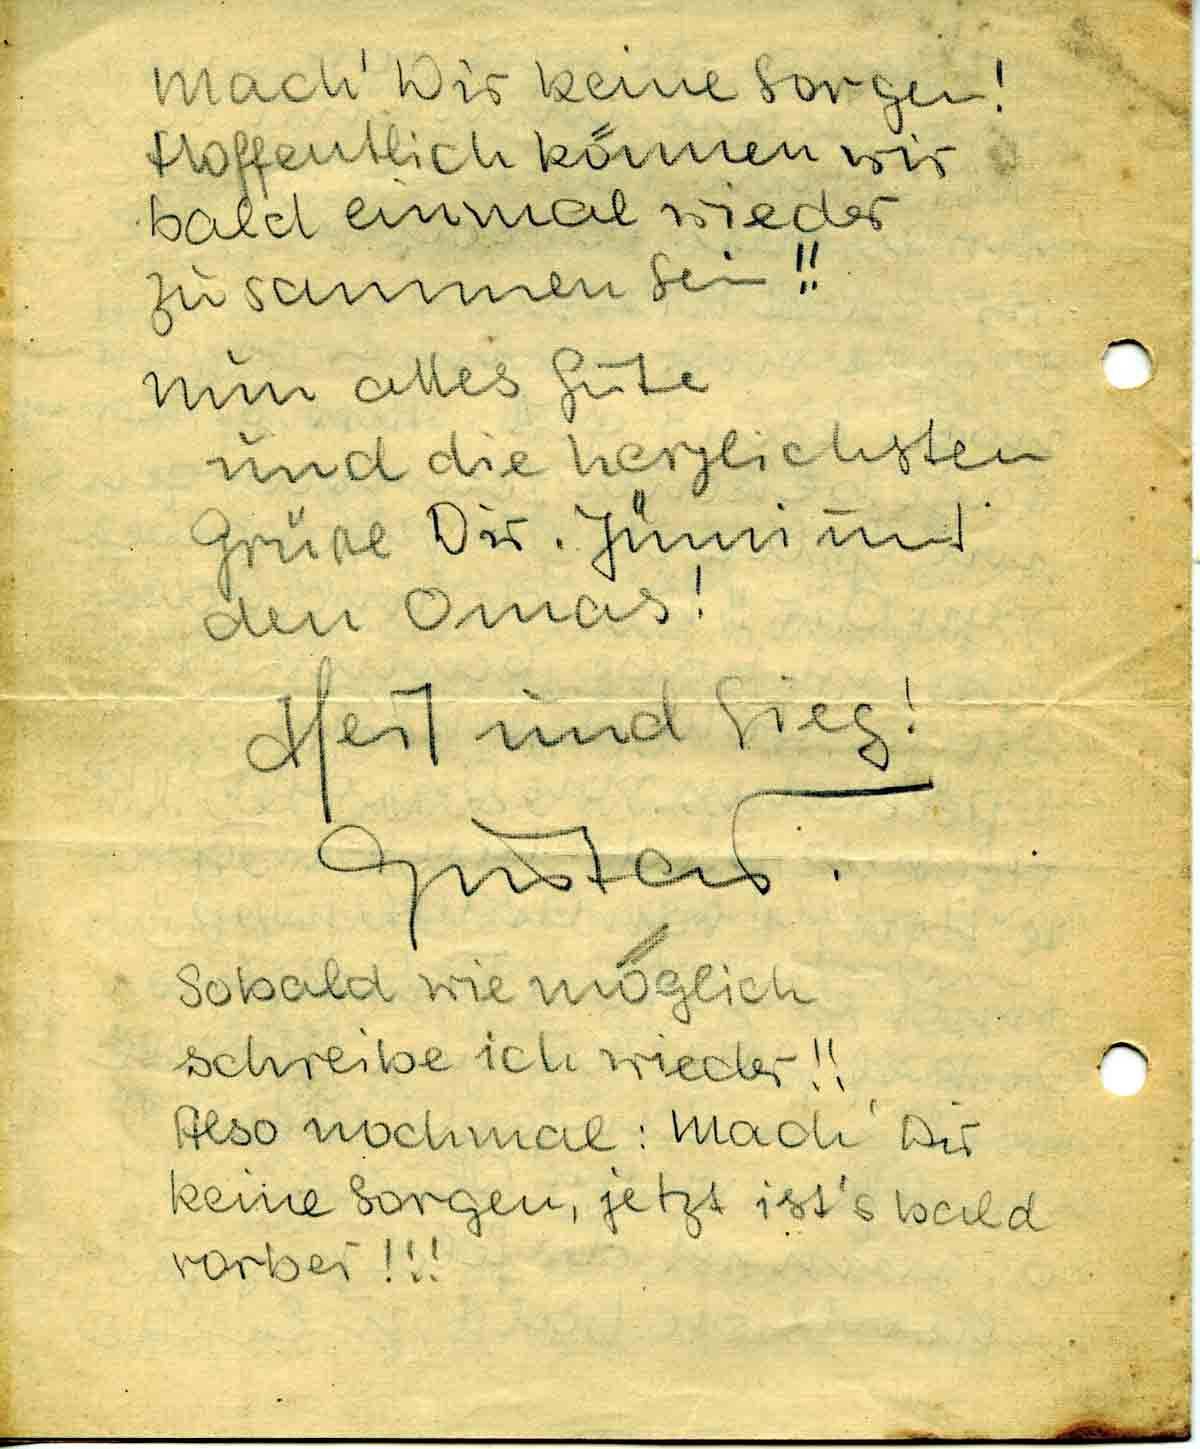 Mach' Dir keine Sorgen!
Hoffentlich können wir
bald einmal wieder
zusammen sein!!
Nun alles Gute
und die herzlichsten
Grüße Dir. und
den Omas!
Heil und Sieg!
Gustav.
Sobald wie möglich
schreibe ich wieder!!
Also nochmal: Mach' Dir
keine Sorgen, jetzt ist's bald
vorbei!!!